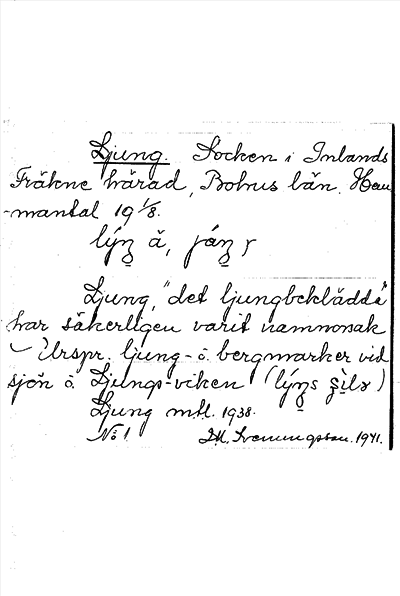 Ljung. Socken i Inlands
Fräkne härad, Bohus län. Hem
-mantal 19 1/8.
lýŋ ă, jáŋ
Ljung, "det ljungbeklädda"
har säkerligen varit namnorsak
Urspr. ljung- o. bergmarker vid
sjön o. Ljungs-viken (lýŋs
Ljung mtl. 1938.
No 1. M. Svenungsson. 1941.